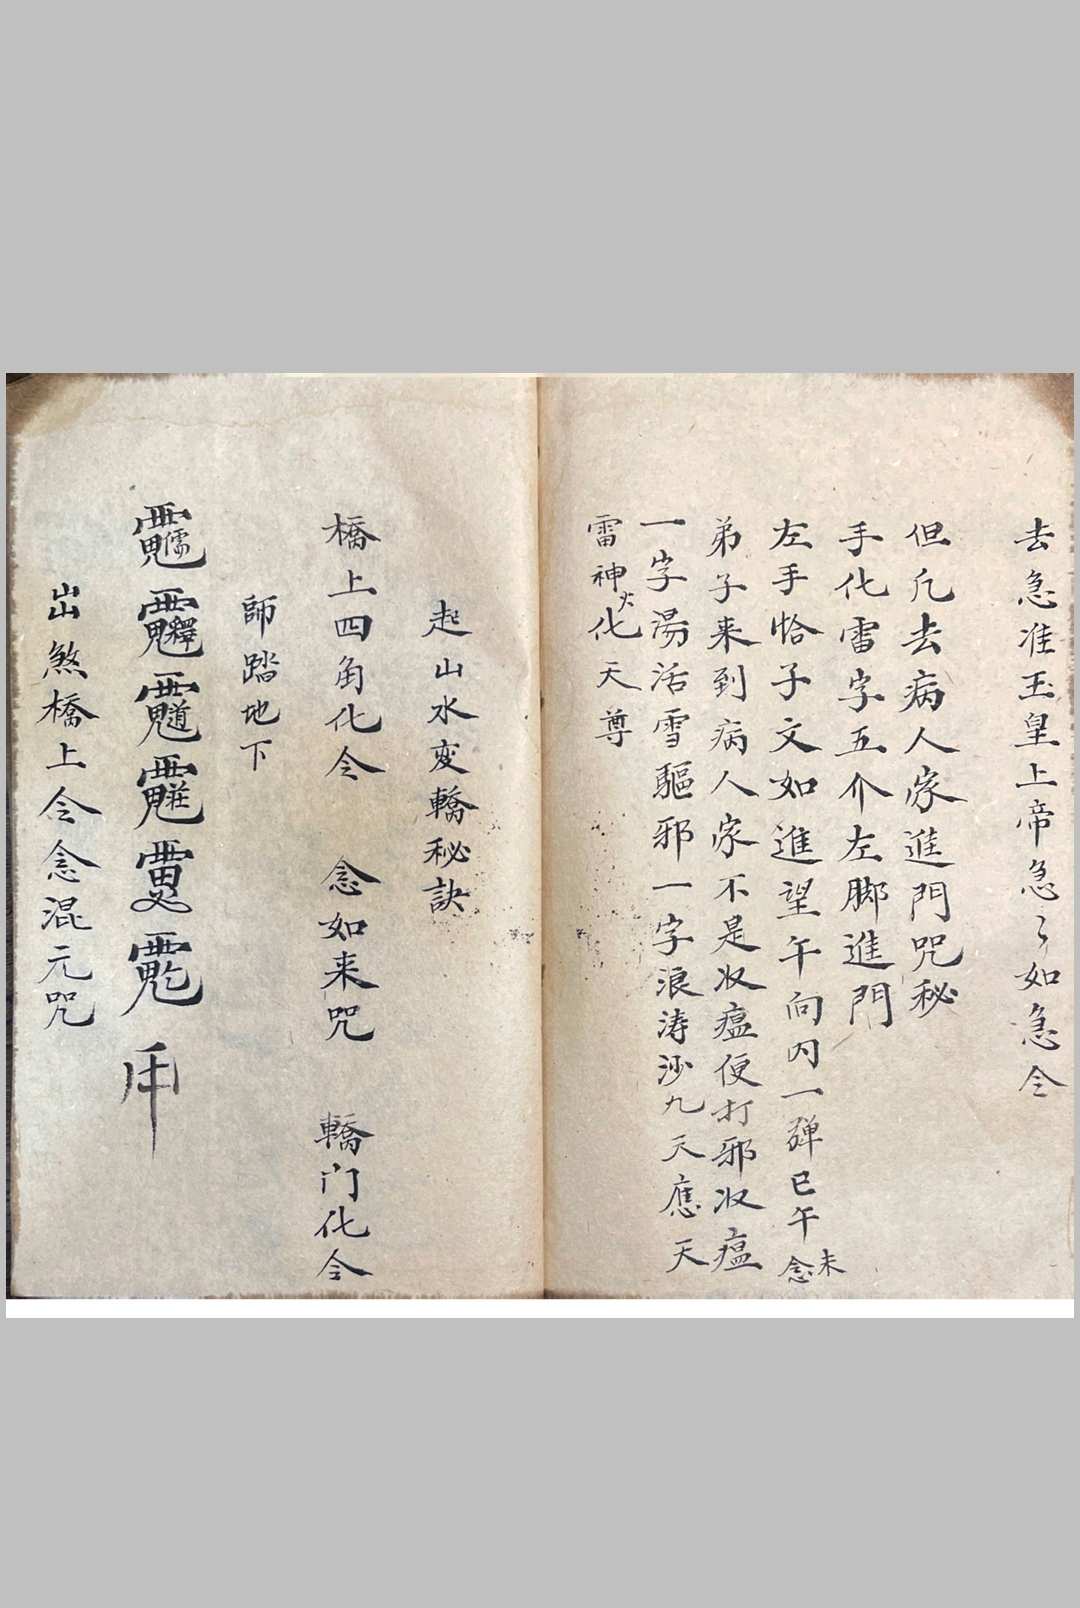 去急准玉皇上帝急々如急令
但凡去病人家進門咒秘
手化雷字五介左脚進門
左手恰子文如進望午向内一弹巳午未念
弟子来到病人家不是収瘟便打邪収瘟
一字湯活雪驅邪一字浪涛沙九天應天
雷神火化天尊
起山水变轎秘訣
橋上四角化令 念如来咒 轎门化令
師踏地下
出煞橋上令念混元咒